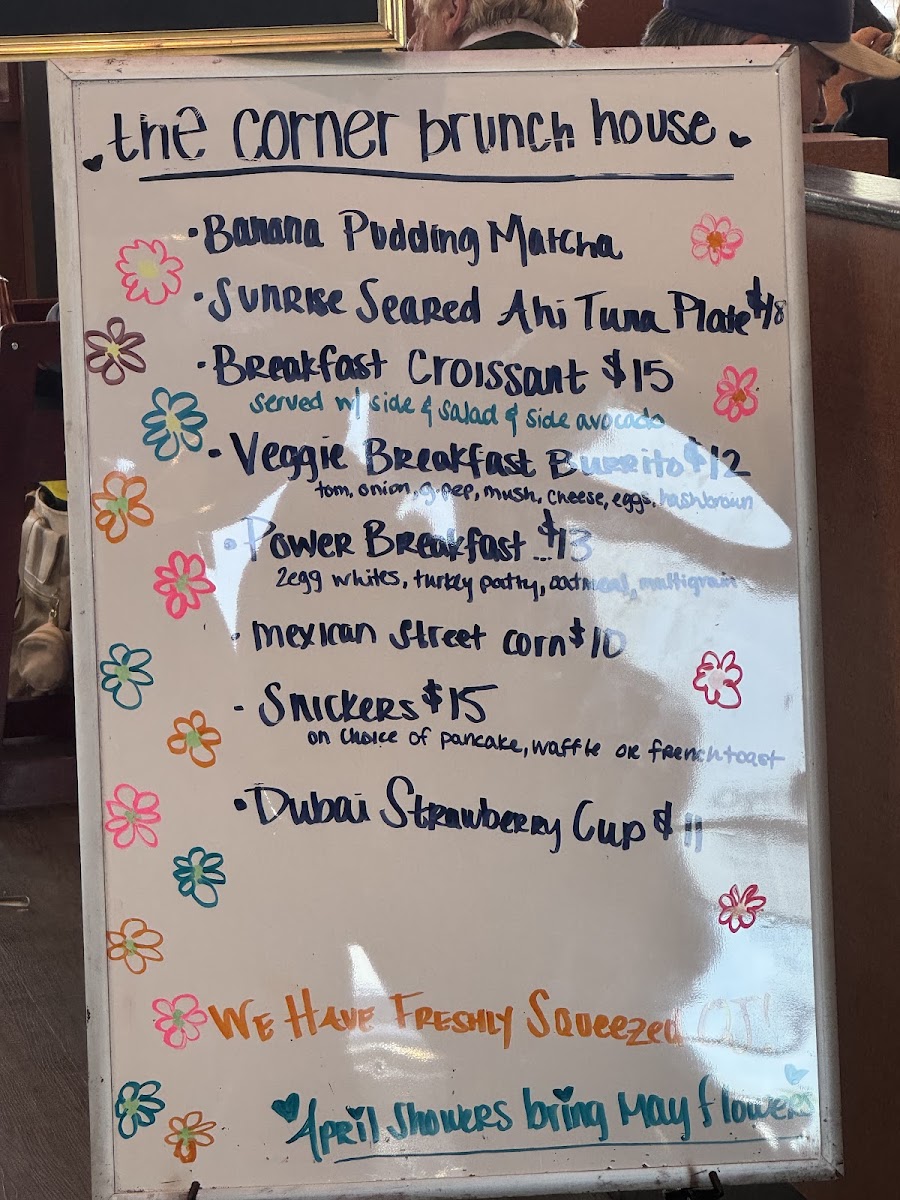 the corner brunch house
• Banana Pudding Matcha
• Sunrise Seared Ahi Tuna Plate $18
• Breakfast Croissant $15
served w/ side & salad & side avocado
• Veggie Breakfast Burrito $12
tom, onion, g.pep, mush, cheese, eggs, hashbrown
• Power Breakfast $13
2egg whites, turkey patty, oatmeal, multigrain
• mexican street corn $10
- Snickers $15
on choice of pancake, waffle or french toast
• Dubai Strawberry Cup $11
We Have Freshly Squeezed OJ!
April Showers bring May flowers